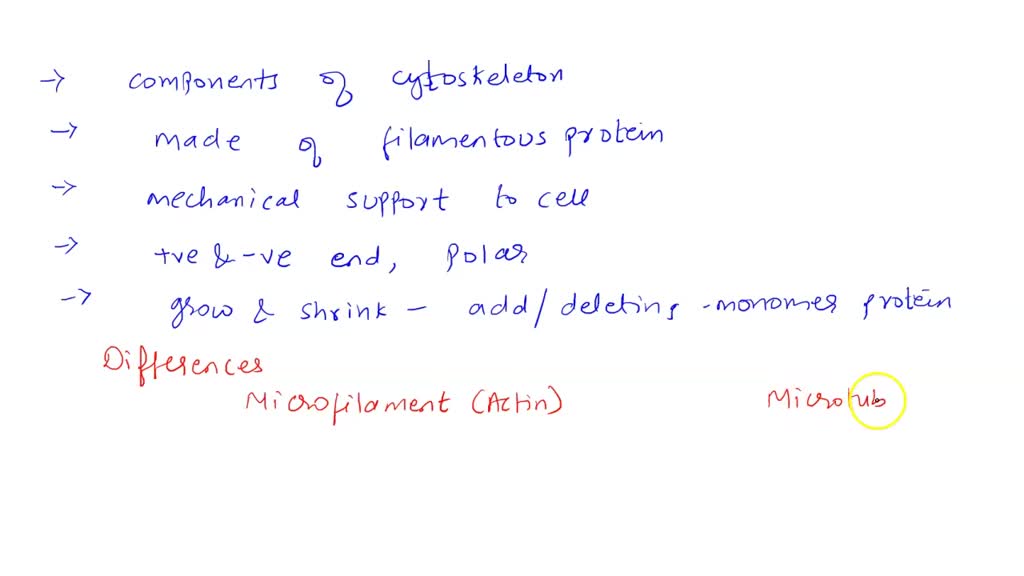 → components of cytoskeleton
→ made of filamentous protein
→ mechanical support to cell
→ +ve & -ve end, polar
→ grow & shrink – add/deleting -monomer protein
Differences
Microfilament (Actin) Microtub